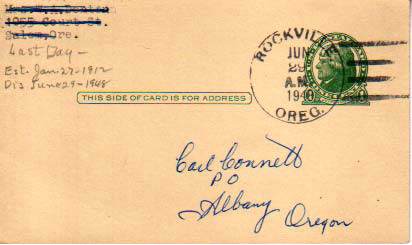 1955 Court St.
Salem, Ore.
Last Day -
Est. Jan-27-1912
Dis June 29-1948
ROCKVILLE
JUN
29
A.M.
194
OREG.
THIS SIDE OF CARD IS FOR ADDRESS
Carl Connett
PO
Albany
Oregon